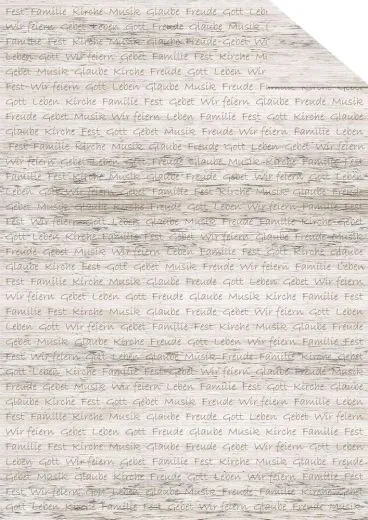 Fest Familie Kirche Musik Glaube Freude Gott Leb
Wir feiern Gebet Leben Gott Freude Musik
Familie Fest Kirche Musik Glaube Freude Gebet Wi
Leben Gott Wir feiern Gebet Familie Fest Kirche Mu
Gebet Musik Glaube Kirche Fest Gott Leben Wir
Fest Wir feiern Gott Leben Glaube Musik Freude F
Gott Leben Kirche Familie Fest Gebet Wir feiern Glaube Freude Musik
Freude Gebet Musik Wir feiern Leben Familie Fest Gott Kirche Glaube
Glaube Kirche Fest Gott Gebet Musik Freude Wir feiern Familie Leben
Fest Familie Kirche Musik Glaube Freude Gott Leben Gebet Wir feiern
Wir feiern Gebet Leben Gott Freude Glaube Musik Kirche Familie Fest
Familie Fest Kirche Musik Glaube Freude Gebet Wir feiern Gott Leben
Leben Gott Wir feiern Gebet Familie Fest Kirche Musik Glaube Freude
Gebet Musik Glaube Kirche Fest Gott Leben Wir feiern Familie Freude
Fest Wir feiern Gott Leben Glaube Musik Freude Familie Kirche Gebet
Gott Leben Kirche Familie Fest Gebet Wir feiern Glaube Freude Musik
Freude Gebet Musik Wir feiern Leben Familie Fest Gott Kirche Glaube
Glaube Kirche Fest Gott Gebet Musik Freude Wir feiern Familie Leben
Fest Familie Kirche Musik Glaube Freude Gott Leben Gebet Wir feiern
Wir feiern Gebet Leben Gott Freude Glaube Musik Kirche Familie Fest
Familie Fest Kirche Musik Glaube Freude Gebet Wir feiern Gott Leben
Leben Gott Wir feiern Gebet Familie Fest Kirche Musik Glaube Freude
Gebet Musik Glaube Kirche Fest Gott Leben Wir feiern Familie Freude
Fest Wir feiern Gott Leben Glaube Musik Freude Familie Kirche Gebet
Gott Leben Kirche Familie Fest Gebet Wir feiern Glaube Freude Musik
Freude Gebet Musik Wir feiern Leben Familie Fest Gott Kirche Glaube
Glaube Kirche Fest Gott Gebet Musik Freude Wir feiern Familie Leben
Fest Familie Kirche Musik Glaube Freude Gott Leben Gebet Wir feiern
Wir feiern Gebet Leben Gott Freude Glaube Musik Kirche Familie Fest
Familie Fest Kirche Musik Glaube Freude Gebet Wir feiern Gott Leben
Leben Gott Wir feiern Gebet Familie Fest Kirche Musik Glaube Freude
Gebet Musik Glaube Kirche Fest Gott Leben Wir feiern Familie Freude
Fest Wir feiern Gott Leben Glaube Musik Freude Familie Kirche Gebet
Gott Leben Kirche Familie Fest Gebet Wir feiern Glaube Freude Musik